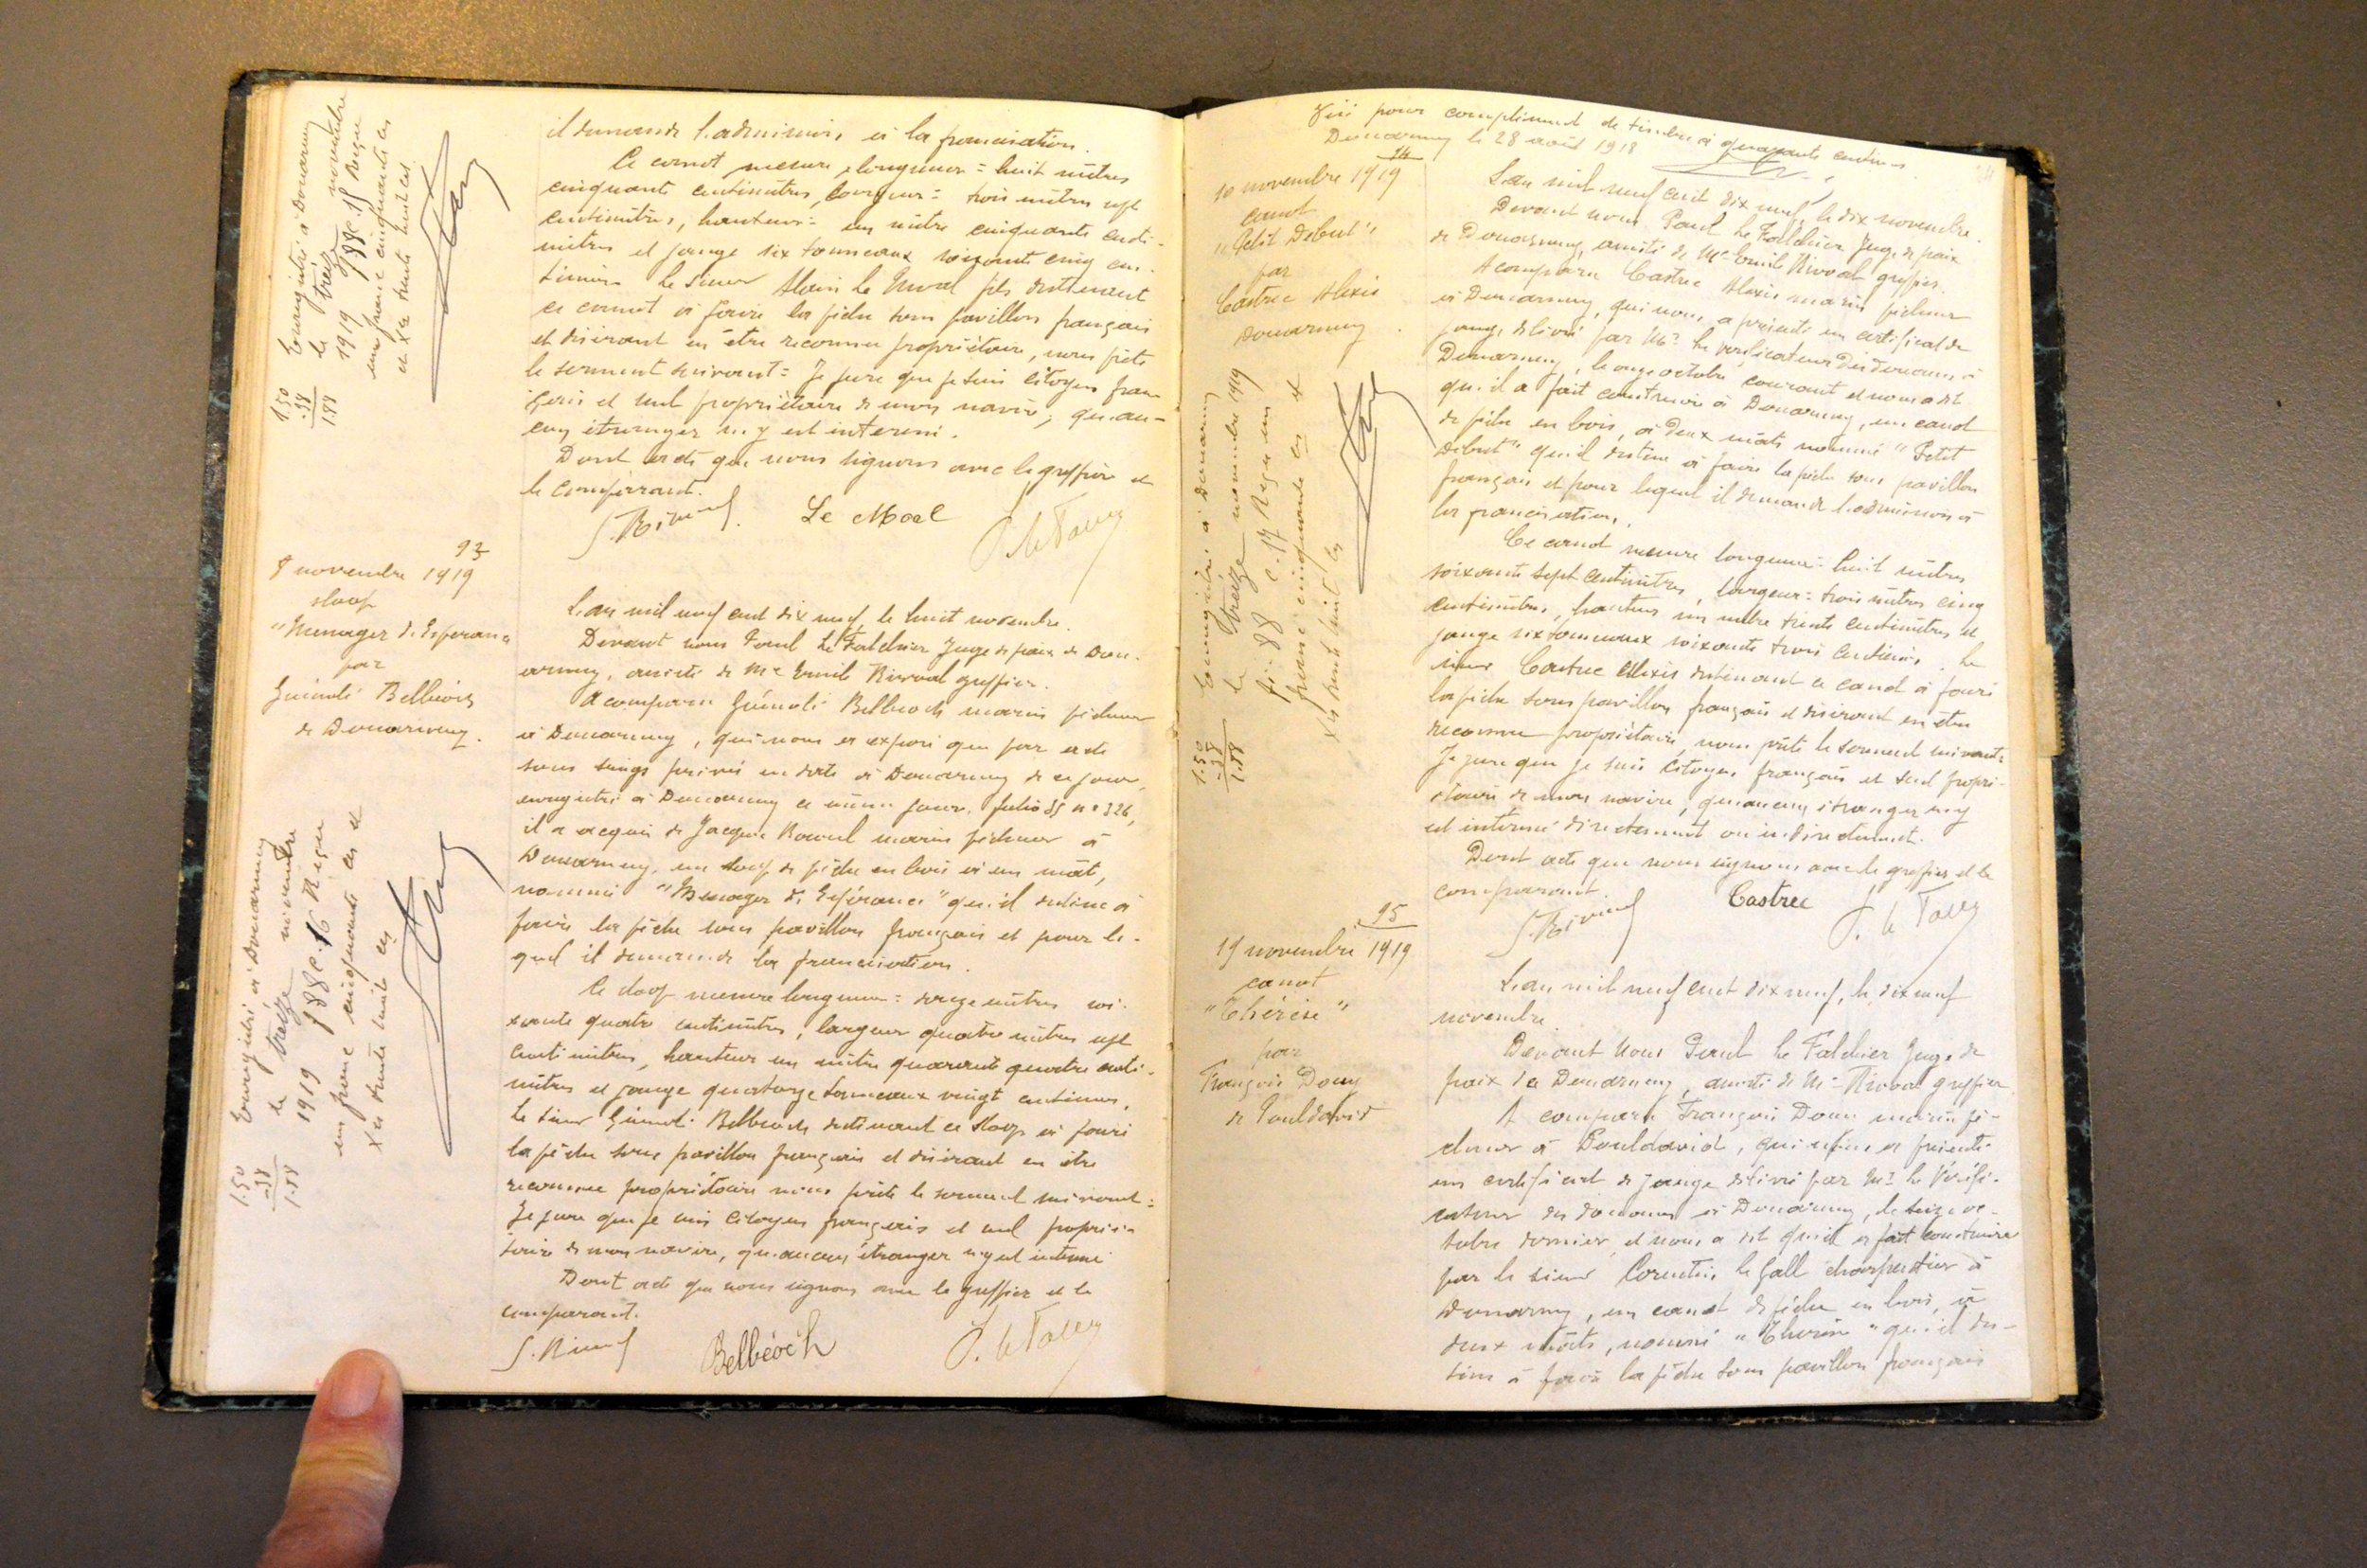 il demande l'admission à la francisation.
Ce canot mesure, longueur = huit mètres
cinquante centimètres, largeur = trois mètres sept
centimètres, hauteur = un mètre cinquante centi-
mètres et jauge six tonneaux soixante cinq cen-
tièmes. Le sieur Alain Le Moal fils destinant
ce canot à faire la pêche sous pavillon français
et désirant en être reconnu propriétaire, nous prête
le serment suivant = Je jure que je suis citoyen fran-
çais et seul propriétaire de mon navire, qu'au-
cun étranger n'y est intéressé.
Dont acte que nous signons avec le greffier et
le comparant.
Le Moal
Enregistré à Douarnenez
le treize novembre
1919 f 88 c. 15 Reçu
un franc cinquante ces
et Xes trente huit ces
1.50
.38
1.88
93
8 novembre 1919
sloop
"Messager de l'Espérance"
par
Guénolé Belbéoch
de Douarnenez.
L'an mil neuf cent dix neuf, le huit novembre.
Devant nous Paul Le Falchier Juge de paix de Dou-
arnenez, assisté de Me Emile Rivoal greffier.
A comparu Guénolé Belbeoch marin pêcheur
à Douarnenez, qui nous a exposé que par acte
sous seings privés en date à Douarnenez de ce jour,
enregistré à Douarnenez ce même jour, folio 35 no 326,
il a acquis de Jacques marin pêcheur à
Douarnenez, un sloop de pêche en bois à un mât,
nommé "Messager de l'Espérance" qu'il destine à
faire la pêche sous pavillon français et pour le-
quel il demande la francisation.
Ce sloop mesure longueur = mètres soi-
xante quatre centimètres, largeur quatre mètres sept
centimètres, hauteur un mètre quarante quatre centi-
mètres et jauge quatorze tonneaux vingt centièmes,
le sieur Guénolé Belbeoch destinant ce sloop à faire
la pêche sous pavillon français et désirant en être
reconnu propriétaire nous prête le serment suivant =
Je jure que je suis citoyen français et seul proprié-
taire de mon navire, qu'aucun étranger n'y est intéressé
Dont acte que nous signons avec le greffier et le
comparant.
Belbéoch
Enregistré à Douarnenez
le treize novembre
1919 f 88 c. 16 Reçu
un franc cinquante ces et
Xes trente huit ces
1.50
.38
1.88
Visé pour complément de timbre à quarante centimes
Douarnenez le 28 août 1918
94
10 novembre 1919
canot
"Petit Debut"
par
Castrec Alexis
Douarnenez
L'an mil neuf cent dix neuf, le dix novembre.
Devant nous Paul Le Falchier Juge de paix
de Douarnenez, assisté de Me Emile Rivoal greffier.
A comparu Castrec Alexis marin pêcheur
à Douarnenez, qui nous a présenté un certificat de
jauge délivré par Mr le vérificateur des Douanes à
Douarnenez, le onze octobre courant et nous a dit
qu'il a fait construire à Douarnenez, un canot
de pêche en bois, à deux mâts nommé "Petit
Debut" qu'il destine à faire la pêche sous pavillon
français et pour lequel il demande l'admission à
la francisation.
Ce canot mesure longueur = huit mètres
soixante sept centimètres, largeur = trois mètres cinq
centimètres, hauteur un mètre trente centimètres et
jauge six tonneaux soixante trois centièmes. Le
sieur Castrec Alexis destinant ce canot à faire
la pêche sous pavillon français et désirant en être
reconnu propriétaire, nous prête le serment suivant =
Je jure que je suis citoyen français et seul propri-
étaire de mon navire, qu'aucun étranger n'y
est intéressé directement ou indirectement.
Dont acte que nous signons avec le greffier et le
comparant.
Castrec
Enregistré à Douarnenez
le treize novembre 1919
f: 88 c. 17 Reçu un
franc cinquante ces et
Xes trente huit ces
1.50
.38
1.88
95
19 novembre 1919
canot
"Thérèse"
par
François Doaré
de Pouldavid
L'an mil neuf cent dix neuf, le dix neuf
novembre.
Devant Nous Paul Le Falchier Juge de
paix de Douarnenez, assisté de Me Rivoal greffier
A comparu François marin pê-
cheur à Pouldavid, qui nous a présenté
un certificat de jauge délivré par Mr le Vérifi-
cateur des douanes à Douarnenez, le seize oc-
tobre dernier et nous a dit qu'il a fait construire
par le sieur Corentin Le Gall charpentier à
Douarnenez, un canot de pêche en bois, à
deux mâts, nommé "Thérèse" qu'il des-
tine à faire la pêche sous pavillon français